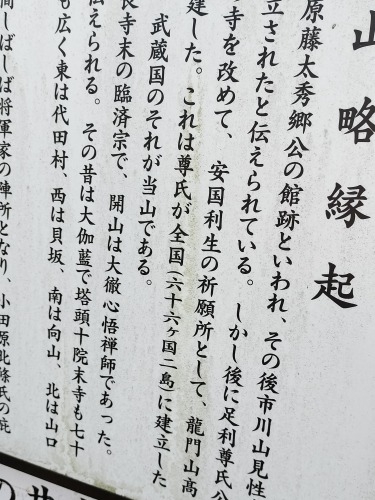 山略縁起
原藤太秀郷公の館跡といわれ、その後市川山見性
立されたと伝えられている。しかし後に足利尊氏公
寺を改めて、安国利生の祈願所として、龍門山高
建した。これは尊氏が全国(六十六ヶ国二島)に建立した
武蔵国のそれが当山である。
長寺末の臨済宗で、開山は大徹心悟禅師であった。
伝えられる。その昔は大伽藍で塔頭十院末寺も七十
も広く東は代田村、西は貝坂、南は向山、北は山口
間しばしば将軍家の陣所となり、小田原北條氏の庇